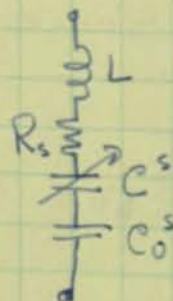 L
Rs
C^s
C_0^s